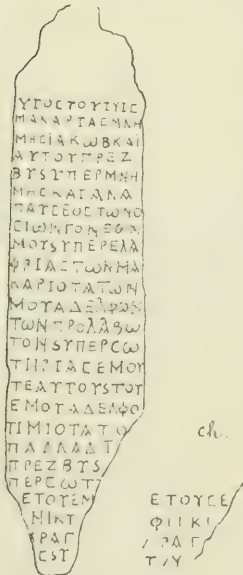 ΥΓΟСΤΟΥΤΥΙС
ΜΑΚΑΡΤΑСΜΝΗ
ΜΗСΙΑΚѠΒΚΑΙ
ΑΥΤΟΥΠΡΕΖ
ΒΥSΥΠΕΡΜΝΗ
ΜΗСΚΑΓΑΝΑ
ΠΑΥСΕѠСΤѠΝΟ
СΙѠΝΓΟΝΕѠΝ
ΜΟΥSΥΠΕΡΕΛΑ
ΦΡΙΑСΤѠΝΜΑ
ΚΑΡΙΟΤΑΤѠΝ
ΜΟΥΑΔΕΛΦѠΝ
ΤѠΝΠΡΟΛΑΒѠ
ΤΟΝSΥΠΕΡСѠ
ΤΙΗΡΓΑСΕΜΟΥ
ΤΕΑΥΤΟΥSΤΟΥ
ΕΜΟΥΑΔΕΛΦΟ
ΤΙΜΙΟΤΑΤΟ
ΠΑΛΛΑΔΙ
ΠΡΕΖΒΥS
ΠΕΡСѠΤ
ΕΤΟΥΕΜ
ΗΙΚΥ
ΡΑΓ
ΕΤΟΥСΕ
ΦΙΙΚΙ
ΡΑΓ
Τ/Υ
ch.